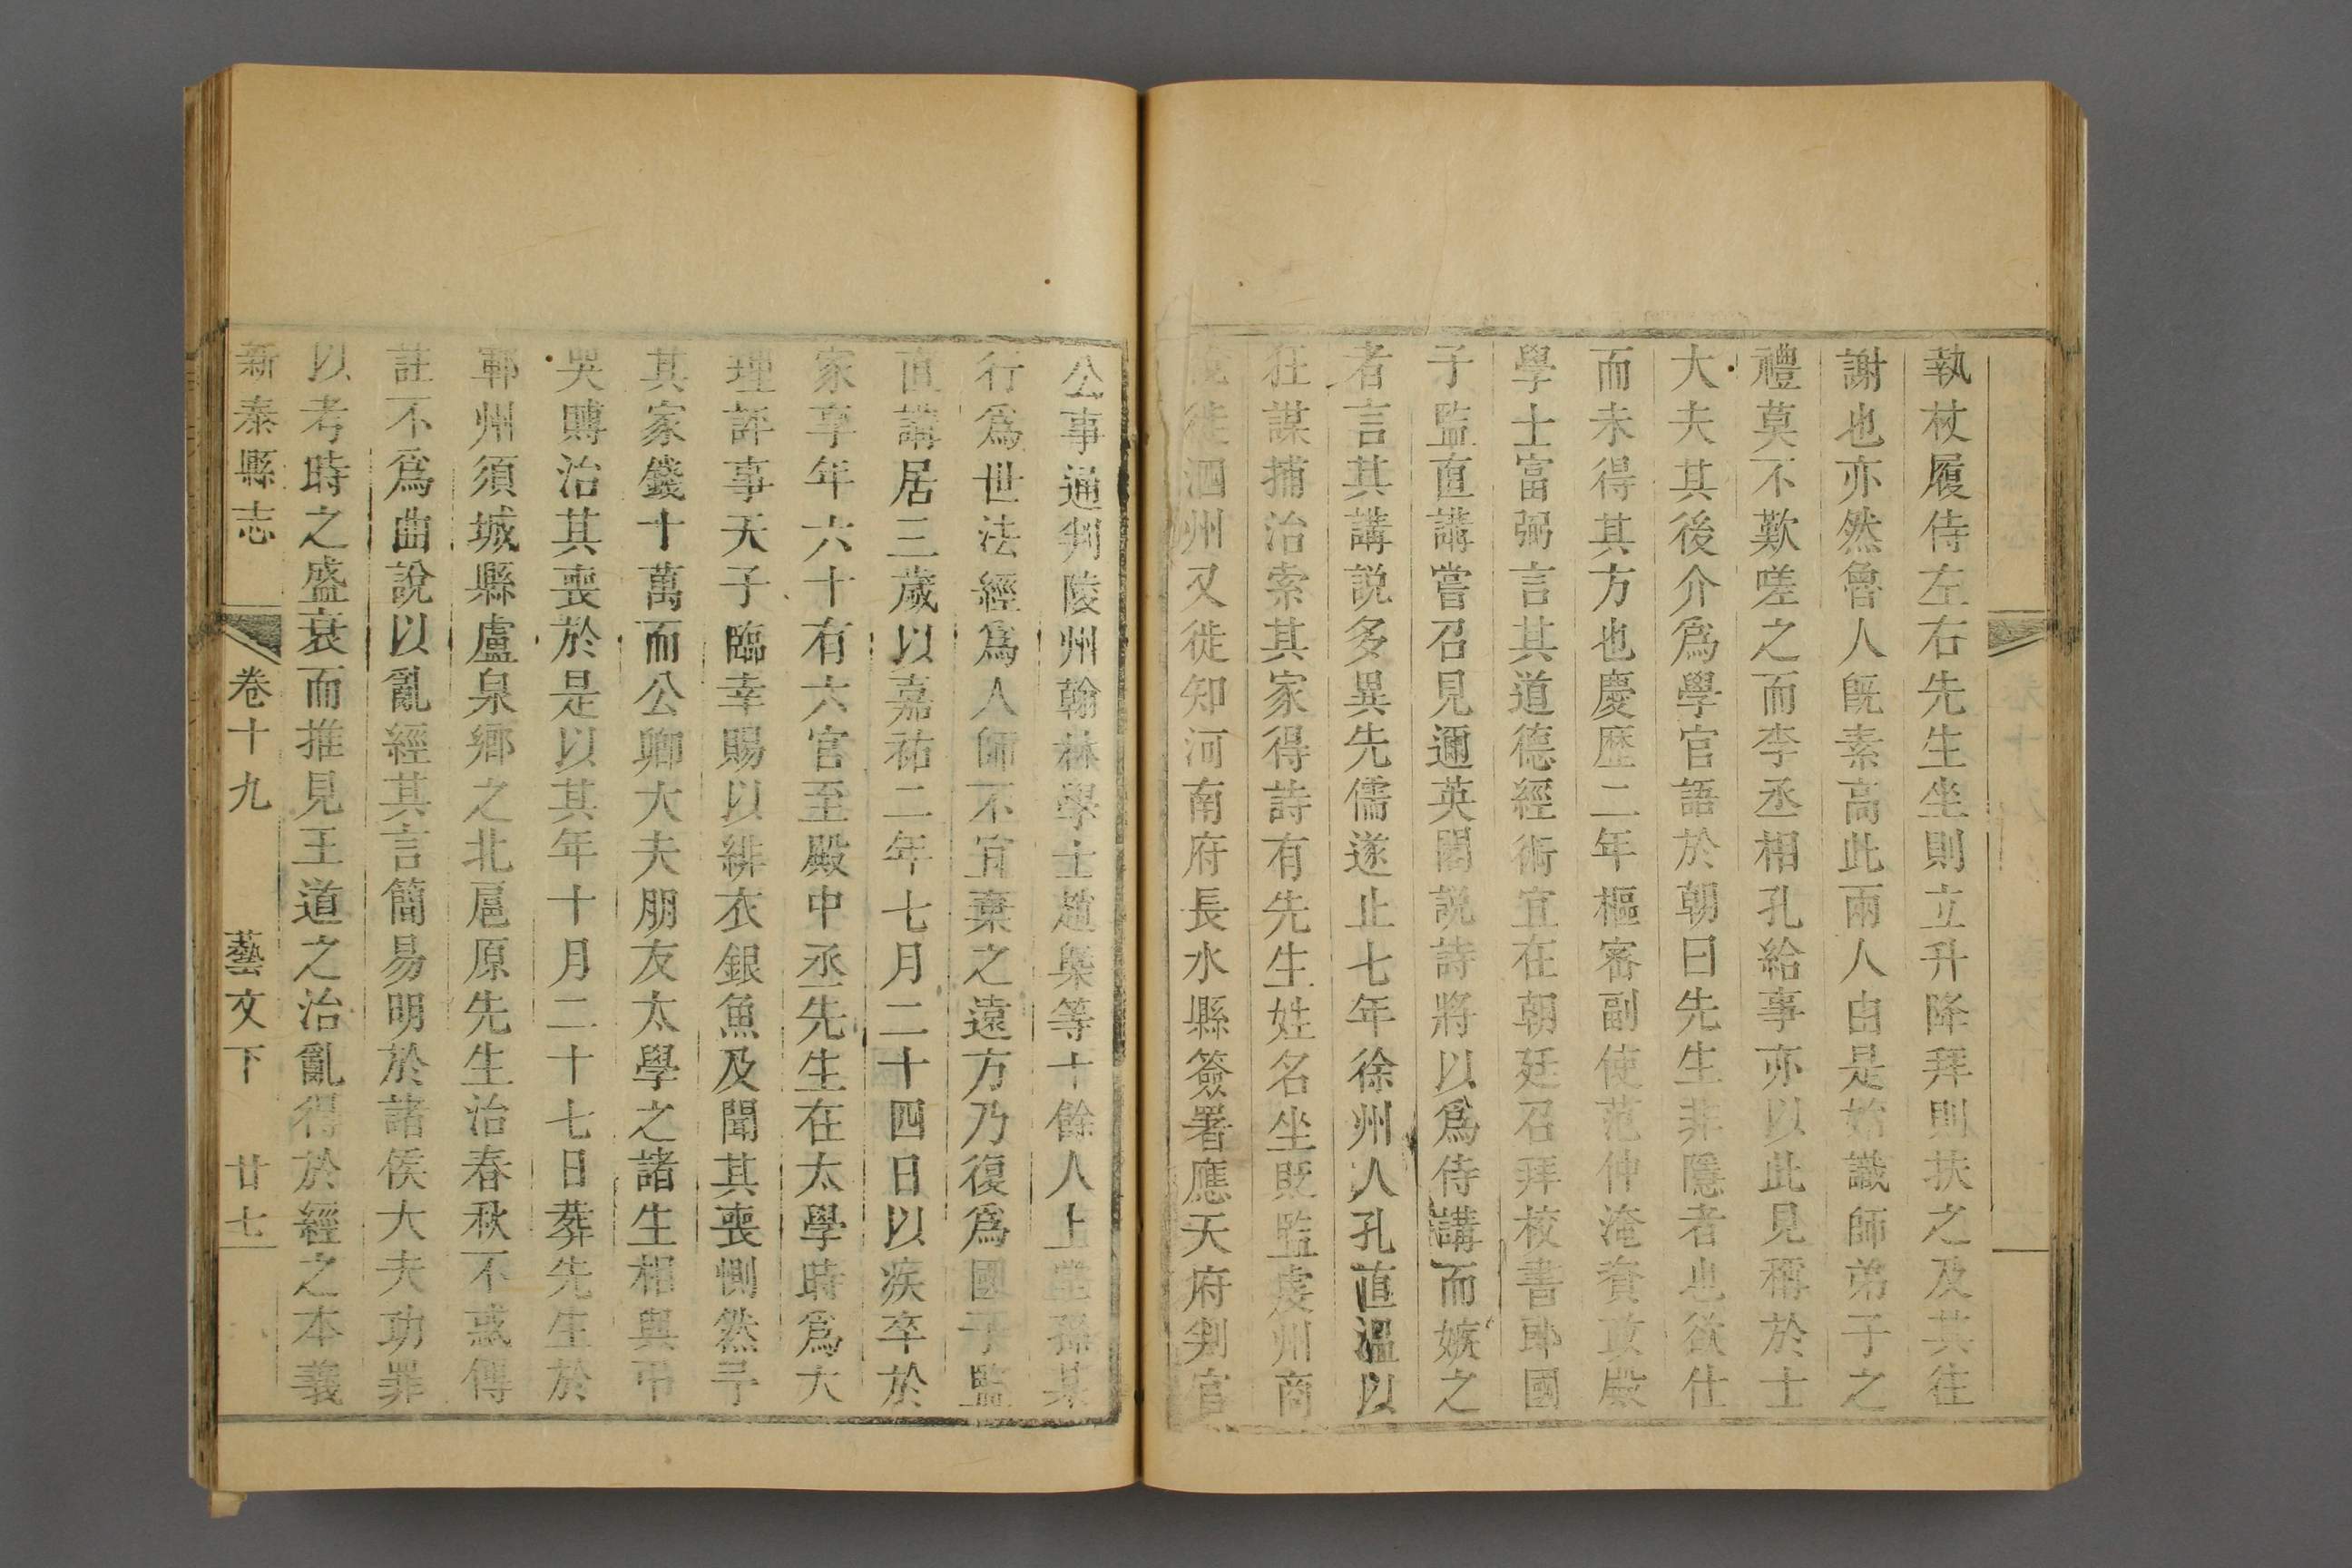 執杖履侍左右先生坐則立升降拜則扶之及其往
謝也亦然魯人旣素高此兩人由是始識師弟子之
禮莫不歎嗟之而李丞相孔給事亦以此見稱於士
大夫其後介爲學官語於朝曰先生非隱者也欲仕
而未得其方也慶歴二年樞密副使范仲淹資政殿
學士富弼言其道德經術宜在朝廷召拜校書郎國
子監直講嘗召見邇英閣說詩將以爲侍講而嫉之
者言其講說多異先儒遂止七年徐州人孔直溫以
狂謀捕治索其家得詩有先生姓名坐貶監處州商
徙泗州又徙知河南府長水縣簽署應天府判官
公事通判陵州翰林學士趙槩等十餘人上言孫某
行爲世法經爲人師不宜棄之遠方乃復爲國子監
直講居三歲以嘉祐二年七月二十四日以疾卒於
家享年六十有六官至殿中丞先生在太學時爲大
理評事天子臨幸賜以緋衣銀魚及聞其喪惻然予
其家錢十萬而公卿大夫朋友太學之諸生相與弔
哭賻治其喪於是以其年十月二十七日葬先生於
鄆州須城縣盧泉鄉之北扈原先生治春秋不惑傳
註不爲曲說以亂經其言簡易明於諸侯大夫功罪
以考時之盛衰而推見王道之治亂得於經之本義
新泰縣志 卷十九 藝文下 廿七